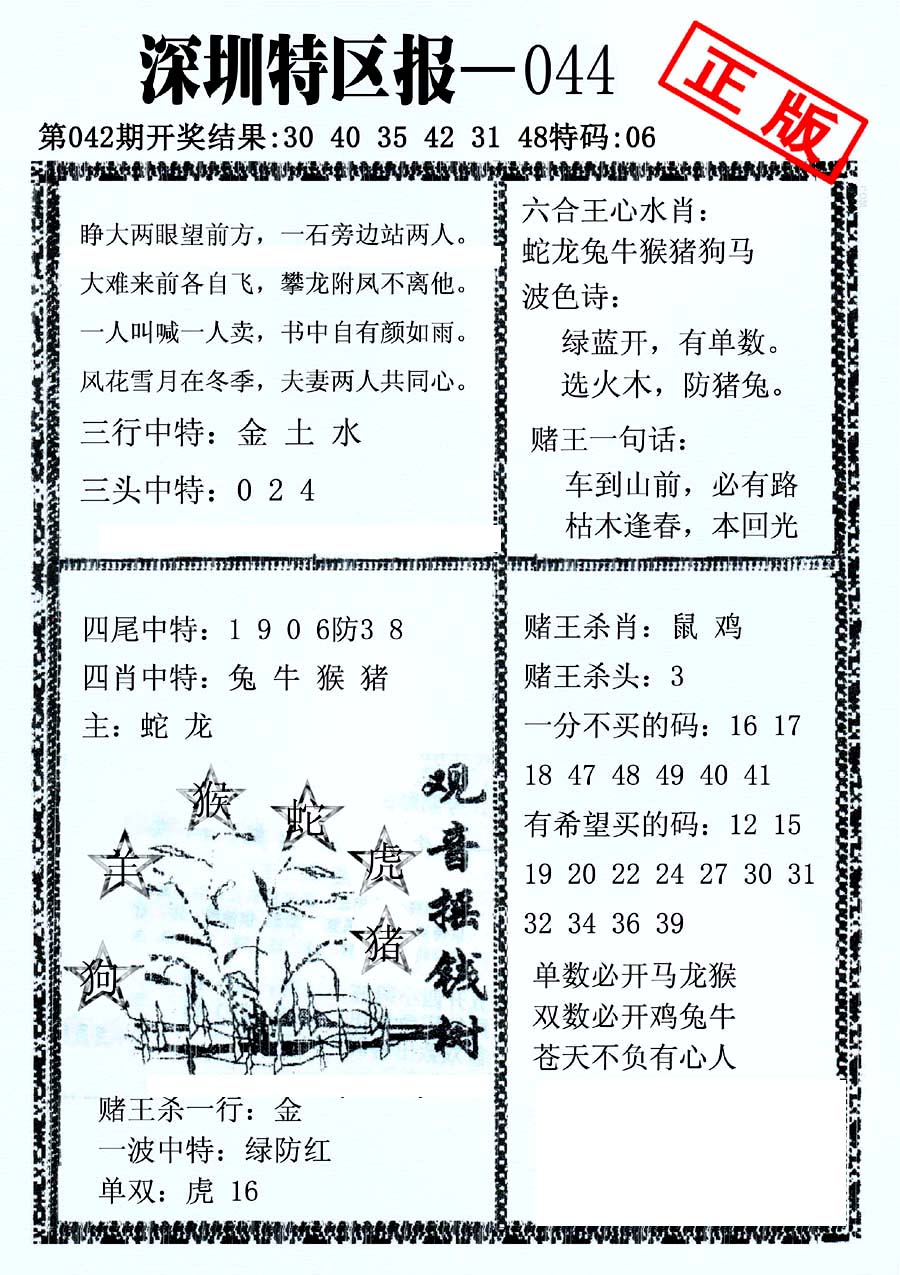 深圳特区报—044
正版
第042期开奖结果:30 40 35 42 31 48特码:06
睁大两眼望前方，一石旁边站两人。
大难来前各自飞，攀龙附凤不离他。
一人叫喊一人卖，书中自有颜如雨。
风花雪月在冬季，夫妻两人共同心。
三行中特：金 土 水
三头中特：0 2 4
六合王心水肖：
蛇龙兔牛猴猪狗马
波色诗：
绿蓝开，有单数。
选火木，防猪兔。
赌王一句话：
车到山前，必有路
枯木逢春，本回光
四尾中特：1 9 0 6防3 8
四肖中特：兔 牛 猴 猪
主：蛇 龙
猴
蛇
羊
虎
猪
狗
观音摇钱树
赌王杀一行：金
一波中特：绿防红
单双：虎 16
赌王杀肖：鼠 鸡
赌王杀头：3
一分不买的码：16 17
18 47 48 49 40 41
有希望买的码：12 15
19 20 22 24 27 30 31
32 34 36 39
单数必开马龙猴
双数必开鸡兔牛
苍天不负有心人